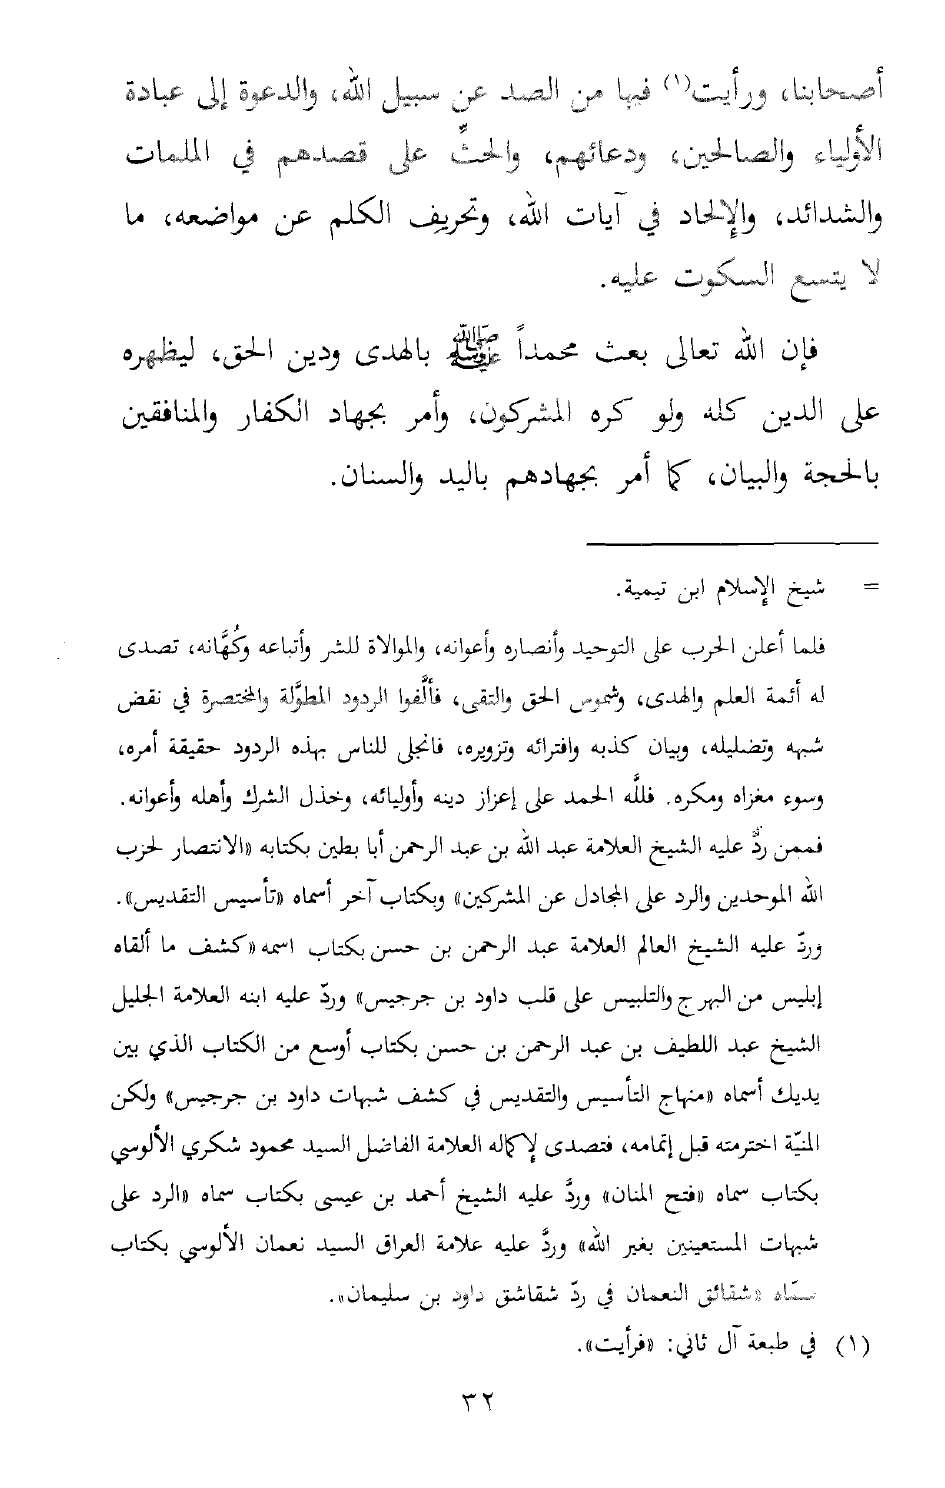 أصحابنا، ورأيت(١) فيها من الصد عن سبيل الله، والدعوة إلى عبادة
الأولياء والصالحين، ودعائهم، والحثِّ على قصدهم في الملمات
والشدائد، والإلحاد في آيات الله، وتحريف الكلم عن مواضعه، ما
لا يتسع السكوت عليه.
فإن الله تعالى بعث محمداً ﷺ بالهدى ودين الحق، ليظهره
على الدين كله ولو كره المشركون، وأمر بجهاد الكفار والمنافقين
بالحجة والبيان، كما أمر بجهادهم باليد والسنان.
= شيخ الإسلام ابن تيمية.
فلما أعلن الحرب على التوحيد وأنصاره وأعوانه، والموالاة للشر وأتباعه وكُهَّانه، تصدى
له أئمة العلم والهدى، وشموس الحق والتقى، فألَّفوا الردود المطوَّلة والمختصرة في نقض
شبهه وتضليله، وبيان كذبه وافترائه وتزويره، فانجلى للناس بهذه الردود حقيقة أمره،
وسوء مغزاه ومكره. فللَّه الحمد على إعزاز دينه وأوليائه، وخذل الشرك وأهله وأعوانه.
فممن ردَّ عليه الشيخ العلامة عبد الله بن عبد الرحمن أبا بطين بكتابه «الانتصار لحزب
الله الموحدين والرد على المجادل عن المشركين» وبكتاب آخر أسماه «تأسيس التقديس».
وردّ عليه الشيخ العالم العلامة عبد الرحمن بن حسن بكتاب اسمه «كشف ما ألقاه
إبليس من البهرج والتلبيس على قلب داود بن جرجيس» وردّ عليه ابنه العلامة الجليل
الشيخ عبد اللطيف بن عبد الرحمن بن حسن بكتاب أوسع من الكتاب الذي بين
يديك أسماه «منهاج التأسيس والتقديس في كشف شبهات داود بن جرجيس» ولكن
المنيّة اخترمته قبل إتمامه، فتصدى لإكماله العلامة الفاضل السيد محمود شكري الألوسي
بكتاب سماه «فتح المنان» وردَّ عليه الشيخ أحمد بن عيسى بكتاب سماه «الرد على
شبهات المستعينين بغير الله» وردَّ عليه علامة العراق السيد نعمان الألوسي بكتاب
سمّاه «شقائق النعمان في ردّ شقاشق داود بن سليمان».
(١) في طبعة آل ثاني: «فرأيت».
٣٢